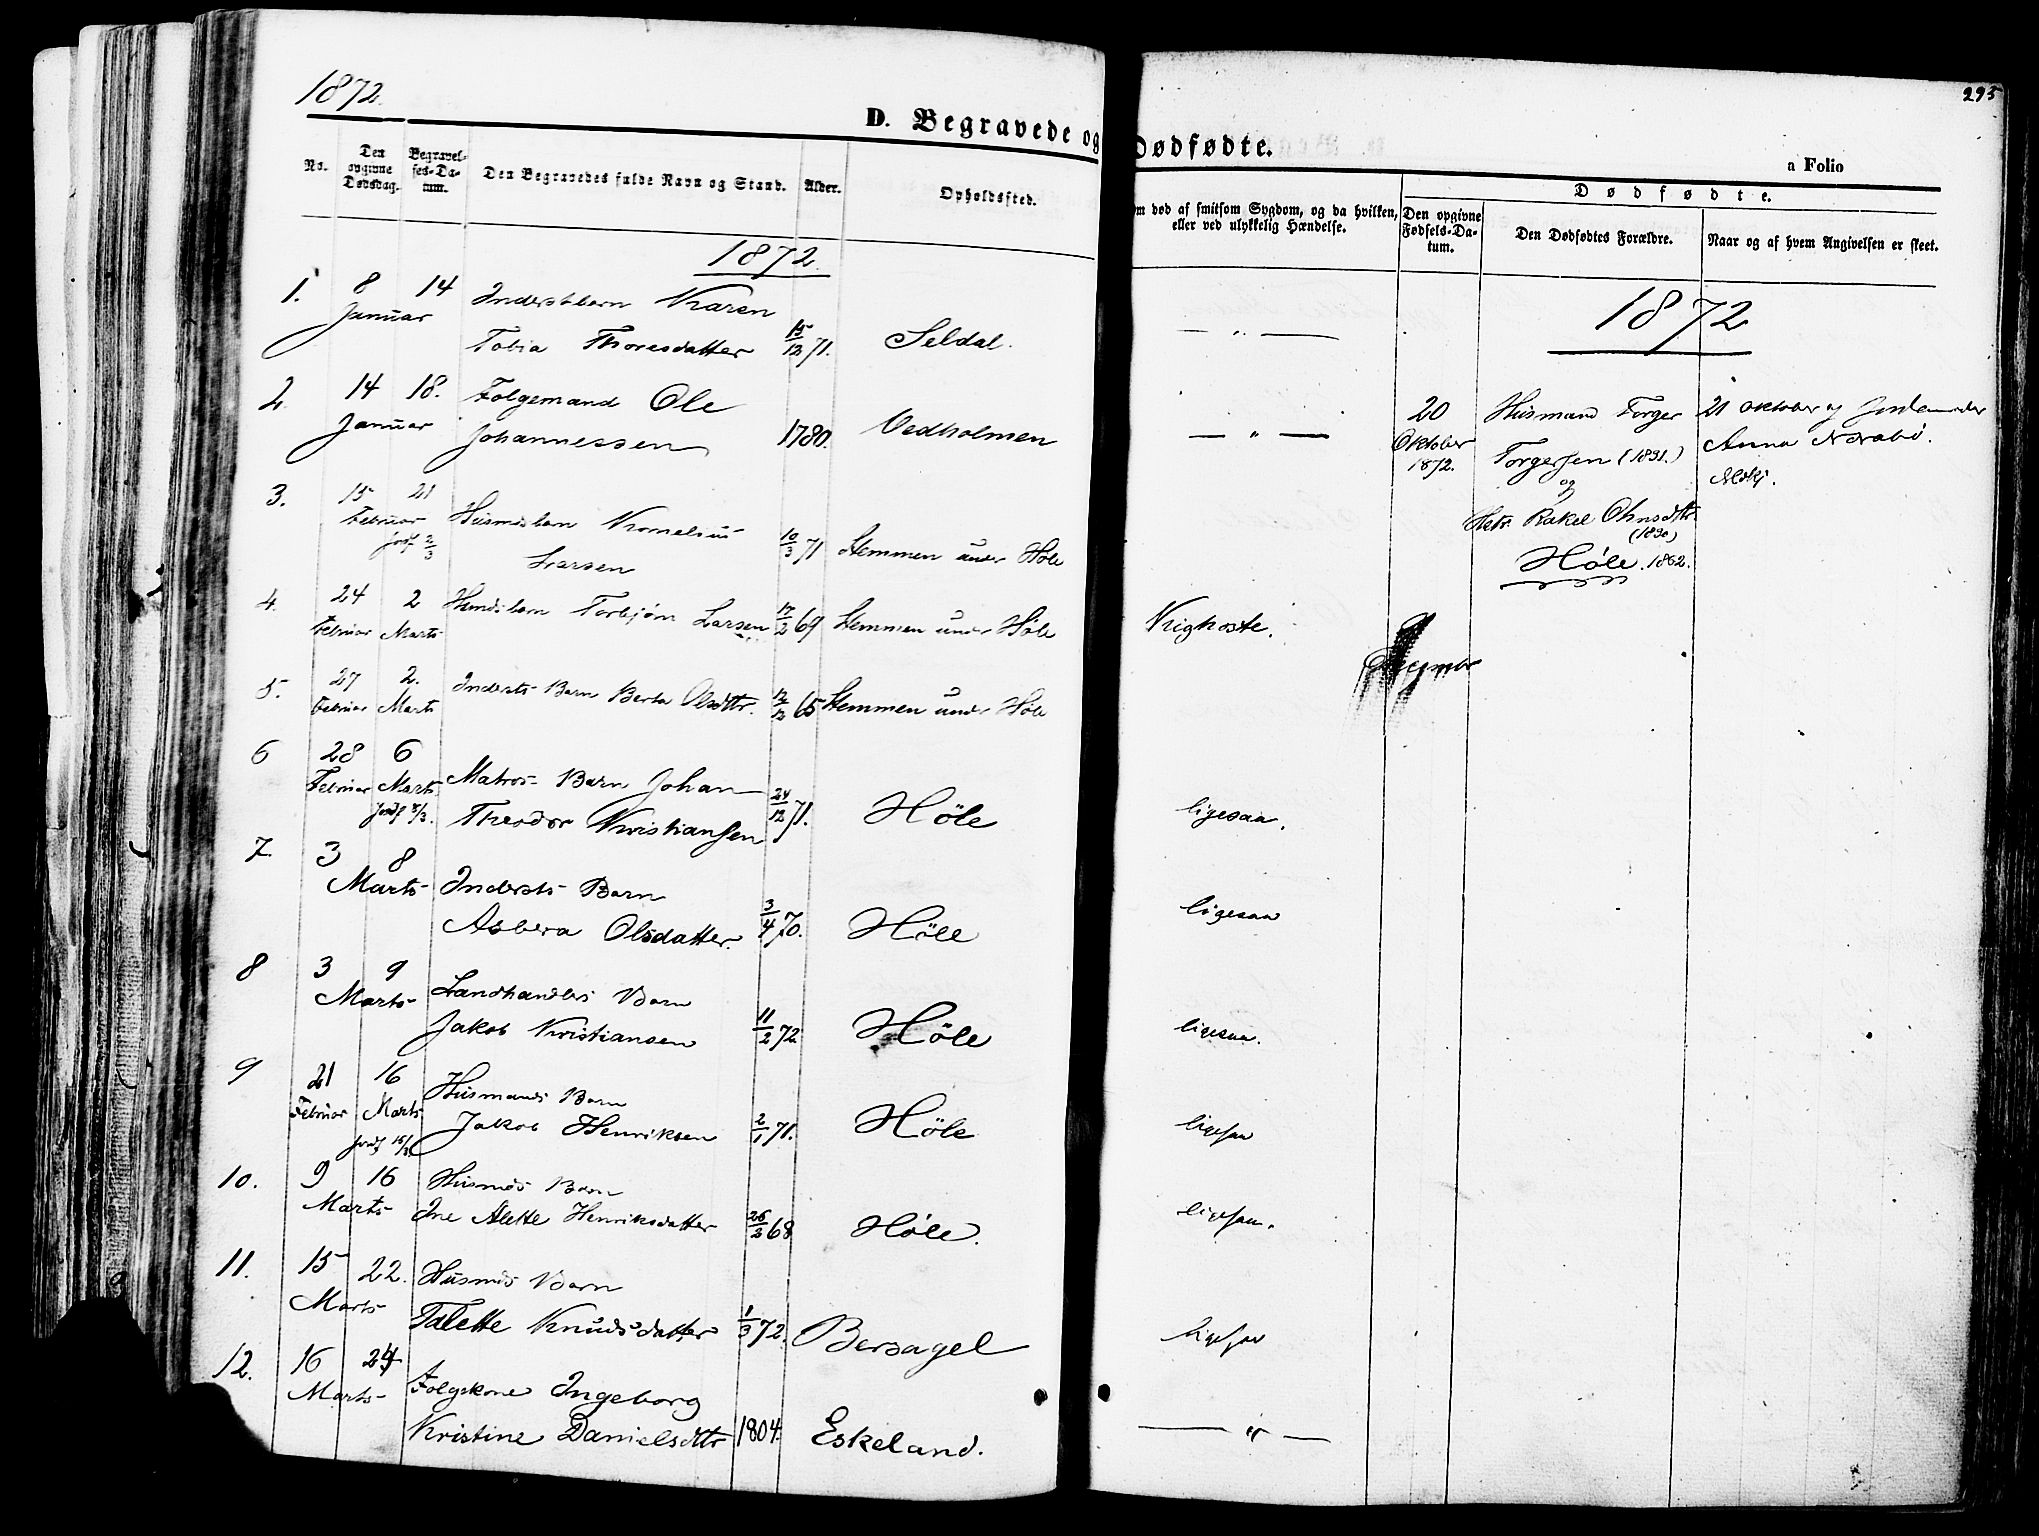 1872.
D. Begravede og
No.
Den opgivne Dødsdag.
Begravelses-Datum.
Den Begravedes fulde Navn og Stand.
Alder.
Opholdssted.
1872.
1. 8 14 Inderstbarn Karen
Januar
Tobia Thoresdatter 15/12 71. Seldal.
2. 14 18. Folgemand Ole
Januar
Johannessen 1780. Vedholmen
3. 15 21
Februar Husmdsbarn Kornelius
jordf 2/3
Larsen 10/3 71 Stemmen under Høle
4. 24 2 Husmdsbarn Torbjørn Larsen 17/2 69 Stemmen under Høle
Februar Marts
5. 27 2. Inderst Barn Berta Olsdttr. 12/12 65 Stemmen under Høle
Februar Marts
6 28 6
Februar Marts Matros- Barn Johan
jordf 8/3.
Theodor Kristiansen 24/12 71. Höle
7. 3 8
Marts Inderst- Barn
Asbera Olsdatter. 3/4 70. Höle
8 3 9
Marts Landhandlers Barn
Jakob Kristiansen 11/2 72 Höle
9 21 16 Husmands Barn
Februar Marts
jordf 16/3. Jakob Henriksen 2/1 71. Höle
10. 9 16 Husmds Barn
Marts Ine Alette Henriksdatter 26/2 68 Höle.
11. 15 22. Husmds Barn
Marts
Talette Knudsdatter 1/3 72. Bersagel
12. 16 24
Marts Folgekone Ingeborg
Kristine Danielsdttr 1804. Eskeland.
295
Dødfødte.
a Folio
Om død af smitsom Sygdom, og da hvilken,
eller ved ulykkelig Hændelse.
Dødfødte.
Den opgivne Fødsels-Datum.
Den Dødfødtes Forældre.
Naar og af hvem Angivelsen er skeet.
1872
— " —
— " —
20 Husmand Torger 21 Oktober af Jordemoder
Oktober
1872. Torgersen (1831.) Anna
og
Rakel Ohnsdttr
(1830)
Høle. 1862.
Kighoste.
ligesaa.
ligesaa
ligesaa.
ligesaa
ligesaa.
ligesaa
— " —